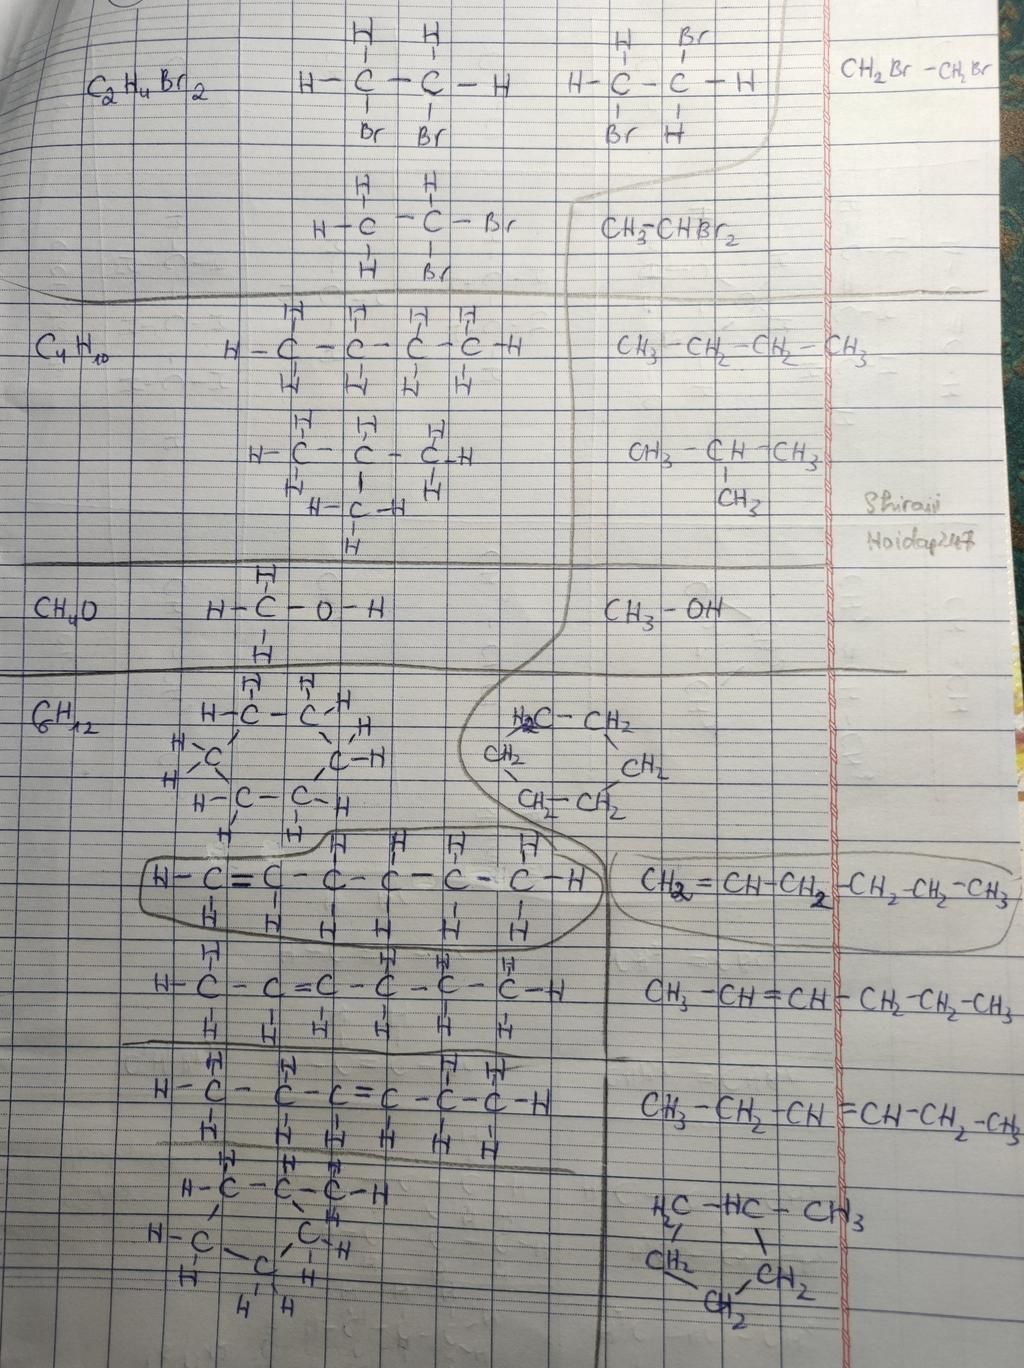 C2H4Br2
H H
H - C - C - H
Br Br
H Br
H - C - C - H
Br H
CH2Br - CH2Br
H H
H - C - C - Br
H Br
CH3-CHBr2
C4H10
H H H H
H - C - C - C - C - H
H H H H
CH3 - CH2 - CH2 - CH3
H H H
H - C - C - C - H
H H
H - C - H
H
CH3 - CH - CH3
CH3
CH4O
H
H - C - O - H
H
CH3 - OH
C6H12
H H
H - C - C - H
H C H
H C - H
H - C - C - H
H H
H2C - CH2
CH2 CH2
CH2 - CH2
H H H H
H - C = C - C - C - C - C - H
H H H H H H
CH2 = CH - CH2 - CH2 - CH2 - CH3
H H H H
H - C - C = C - C - C - C - H
H H H H H H
CH3 - CH = CH - CH2 - CH2 - CH3
H H H H
H - C - C - C = C - C - C - H
H H H H H H
CH3 - CH2 - CH = CH - CH2 - CH3
H H H
H - C - C - C - H
H
H - C C - H
H C H
H H
H2C - HC - CH3
CH2 CH2
CH2